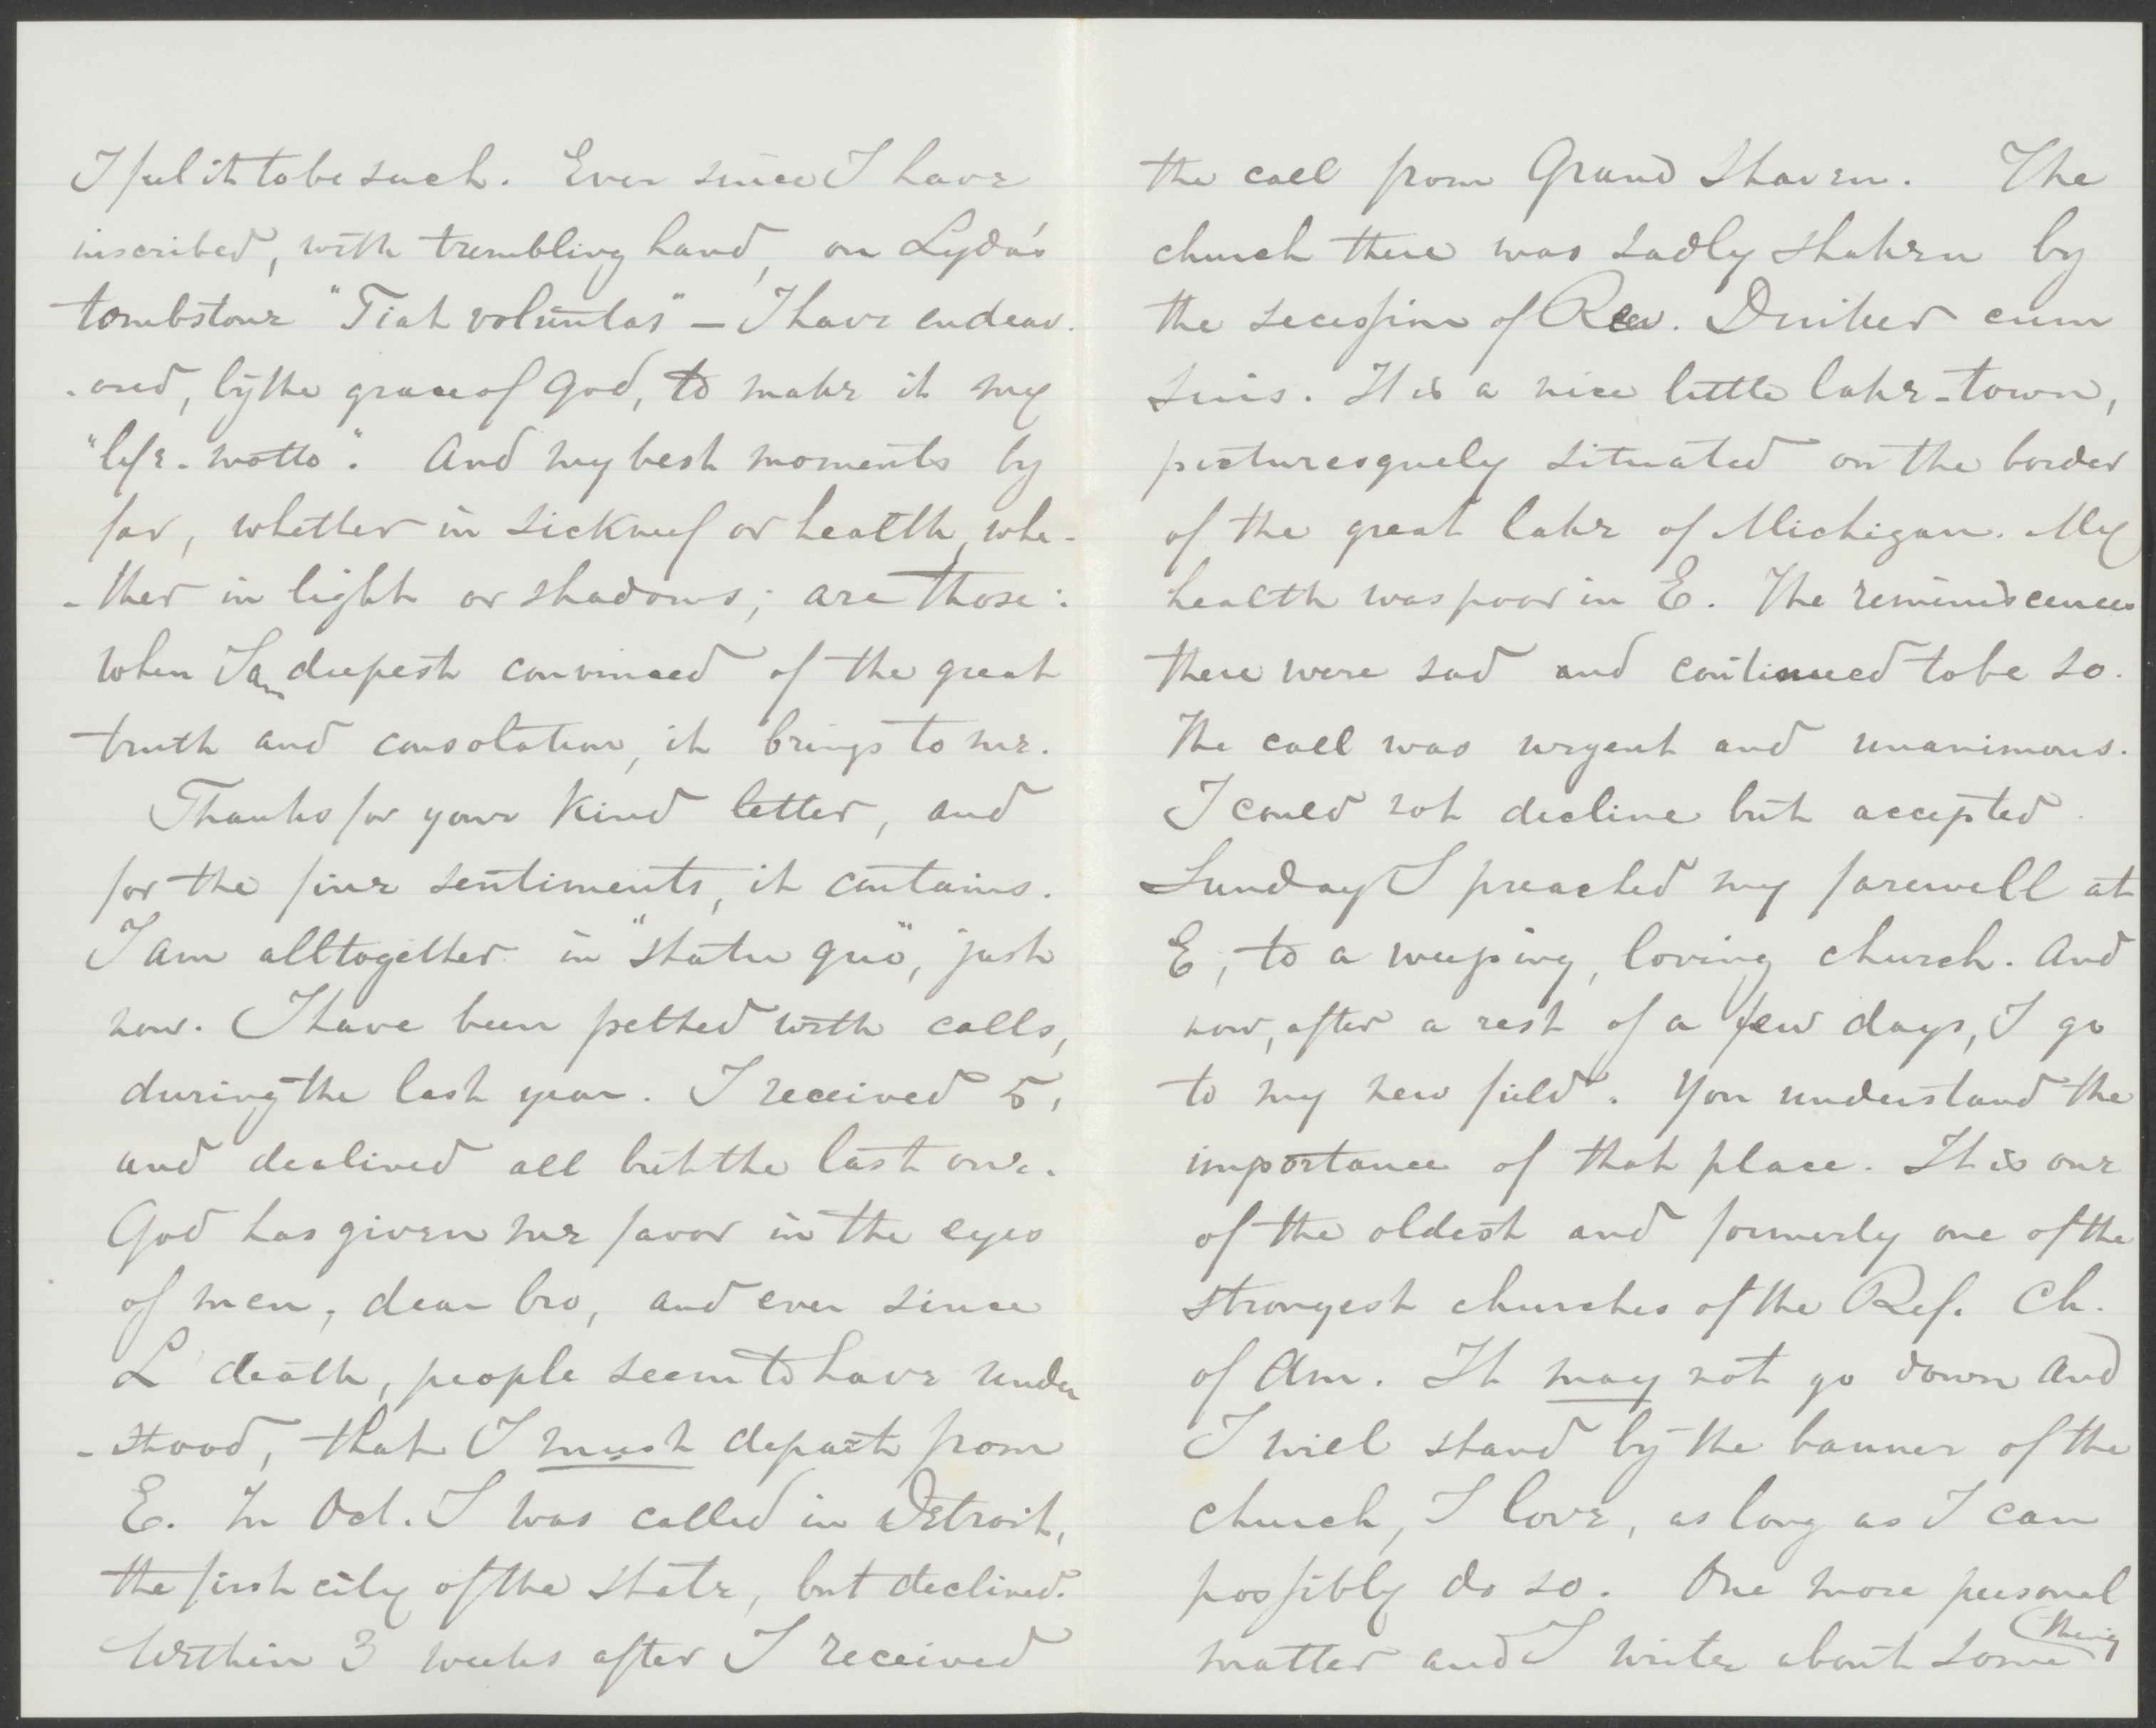 I feel it to be such. Ever since I have
inscribed, with trembling hand, on Lyda's
tombstone "Fiat voluntas" – I have endeav.
-ored, by the grace of God, to make it my
"life-motto". And my best moments by
far, whether in sickness or health, whe-
-ther in light or shadows; are those:
when I am deepest convinced of the great
truth and consolation, it brings to me.
Thanks for your kind letter, and
for the fine sentiments, it contains.
I am alltogether in "statu quo", just
now. I have been petted with calls,
during the last year. I received 5,
and declined all but the last one.
God has given me favor in the eyes
of men, dear bro, and ever since
L' death, people seem to have under
-stood, that I must depart from
E. In Oct. I was called in Detroit,
the first city of the state, but declined.
Within 3 weeks after I received
the call from Grand Haven. The
church there was sadly shaken by
the secession of Rev. cum
suis. It is a nice little lake-town,
picturesquely situated on the border
of the great lake of Michigan. My
health was poor in E. The reminiscences
there were sad and continued to be so.
The call was urgent and unanimous.
I could not decline but accepted.
Sunday I preached my farewell at
E, to a weeping, loving church. And
now, after a rest of a few days, I go
to my new field. You understand the
importance of that place. It is one
of the oldest and formerly one of the
strongest churches of the Ref. Ch.
of Am. It may not go down and
I will stand by the banner of the
church, I love, as long as I can
possibly do so. One more personal
matter and I write about some thing